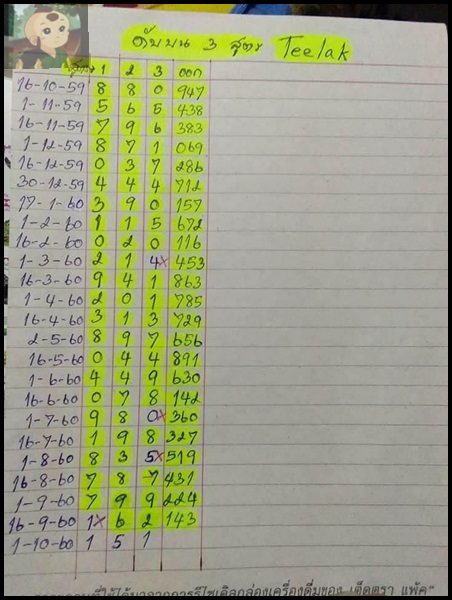 ดับบน 3 สูตร Teelak
สูตร 1 2 3 ออก
16-10-59 8 8 0 947
1-11-59 5 6 5 438
16-11-59 7 9 6 383
1-12-59 8 7 1 069
16-12-59 0 3 7 286
30-12-59 4 4 4 712
17-1-60 3 9 0 157
1-2-60 1 1 5 672
16-2-60 0 2 0 116
1-3-60 2 1 4x 453
16-3-60 9 4 1 863
1-4-60 2 0 1 785
16-4-60 3 1 3 729
2-5-60 8 9 7 656
16-5-60 0 4 4 891
1-6-60 4 4 9 630
16-6-60 0 7 8 142
1-7-60 9 8 0x 360
16-7-60 1 9 8 327
1-8-60 8 3 5x 519
16-8-60 7 8 7 431
1-9-60 7 9 9 224
16-9-60 1x 6 2 143
1-10-60 1 5 1
ที่ได้มาจากการรีไซเคิลกล่องเครื่องดื่มของ